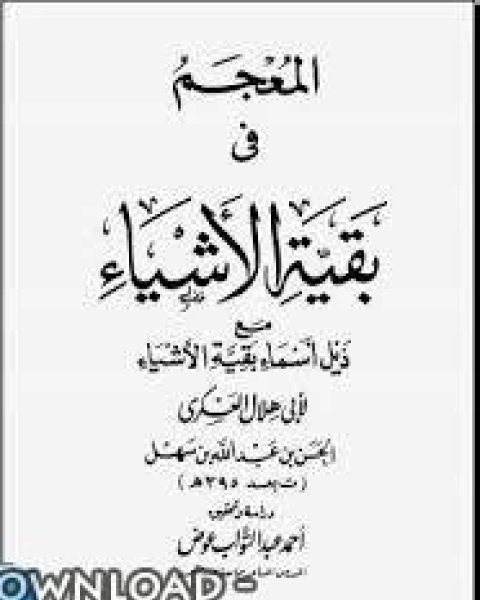 المُعْجَمُ
فى
بَقِيَّةِ الأَشْيَاءِ
مع
ذَيْل أَسْمَاءِ بَقِيَّةِ الأَشْيَاءِ
لأبى هلال العسكرى
الحسن بن عبد الله بن سهل
(ت بعد ٣٩٥ هـ)
دراسة وتحقيق
أحمد عبد التواب عوض
OWNLOAD -